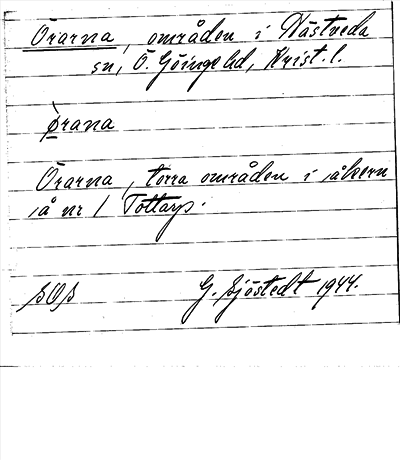 Örarna, områden i Västveda
sn, Ö. Göinge hd, Krist. l.
ø̀rana
Örarna, torra områden i åkern
å nr 1 Tottarp.
SOS
G. Sjöstedt 1944.